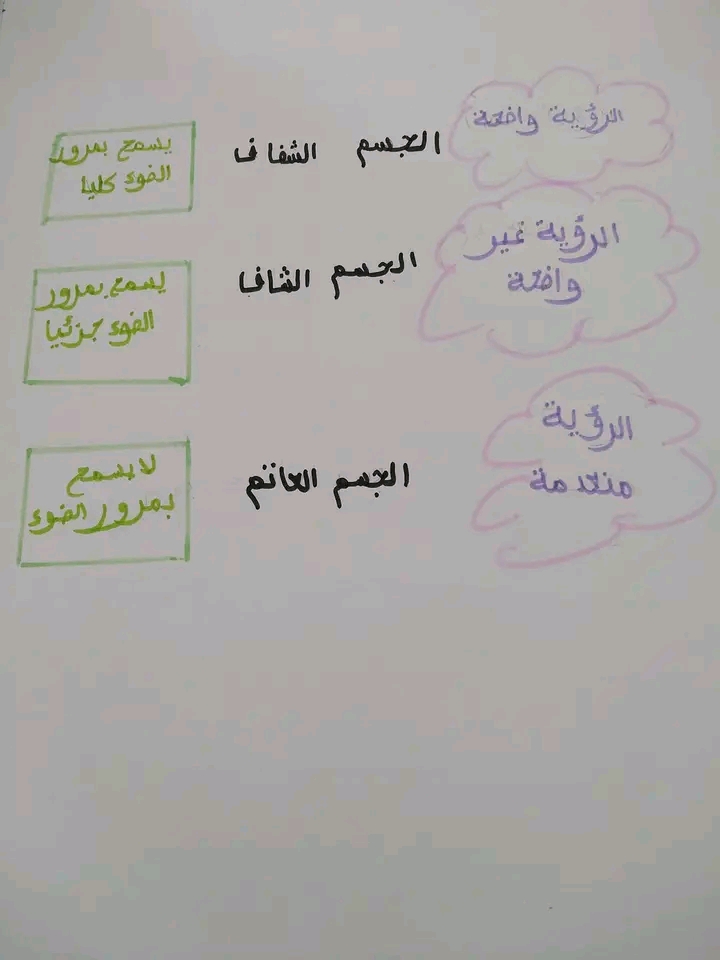 الرؤية واضحة
الجسم الشفاف
يسمح بمرور
الضوء كليا
الرؤية غير
واضحة
الجسم الشاف
يسمح بمرور
الضوء جزئيا
الرؤية
منعدمة
الجسم العاتم
لا يسمح
بمرور الضوء